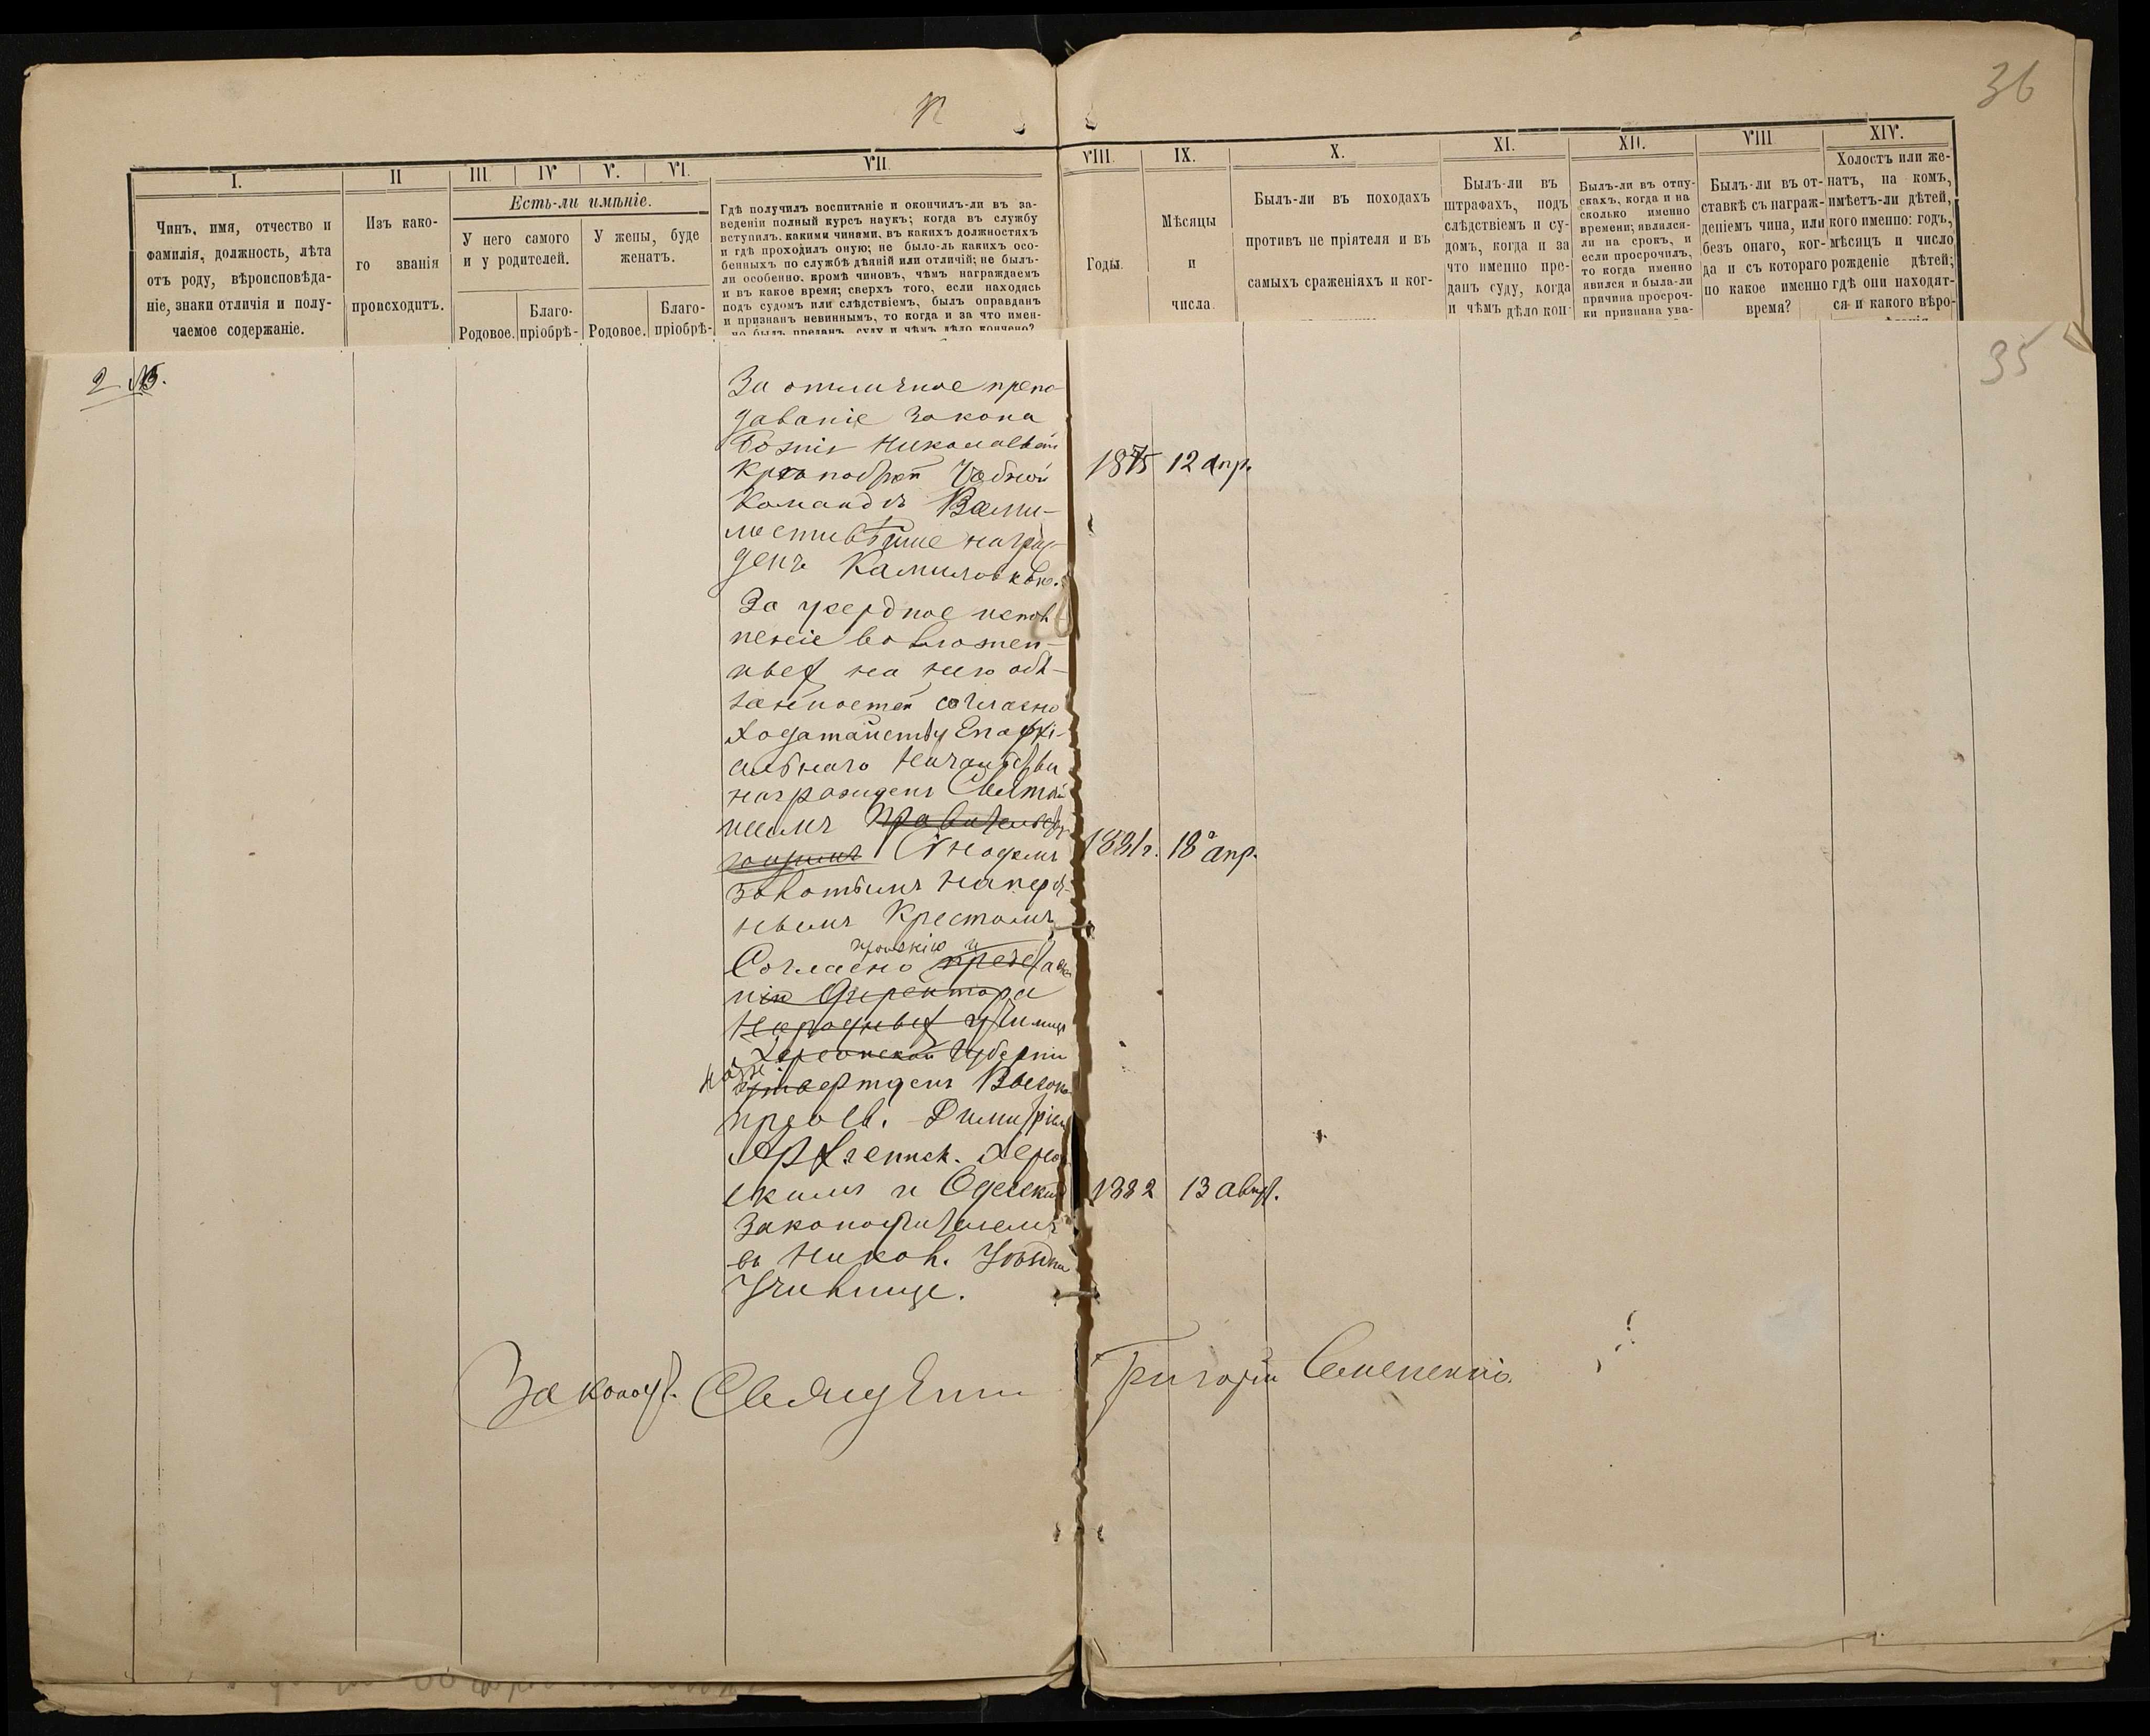 36
I.
II
III
IV
V.
VI.
VII.
VIII.
IX.
X.
XI.
XII.
VIII
XIV.
Чинъ, имя, отчество и
фамилія, должность, лѣта
отъ роду, вѣроисповѣда-
ніе, знаки отличія и полу-
чаемое содержаніе.
Изъ како-
го званія
происходитъ.
Есть-ли имѣніе.
У него самого
и у родителей.
У жены, буде
женатъ.
Родовое.
Благо-
пріобрѣ-
Родовое.
Благо-
пріобрѣ-
Гдѣ получилъ воспитаніе и окончилъ-ли въ за-
веденіи полный курсъ наукъ; когда въ службу
вступилъ, какими чинами, въ какихъ должностяхъ
и гдѣ проходилъ оную; не было-ль какихъ осо-
бенныхъ по службѣ дѣяній или отличій; не былъ-
ли особенно, кромѣ чиновъ, чѣмъ награждаемъ
и въ какое время; сверхъ того, если находясь
подъ судомъ или слѣдствіемъ, былъ оправданъ
и признанъ невиннымъ, то когда и за что имен-
но былъ преданъ суду и чѣмъ дѣло кончено?
Годы.
Мѣсяцы
и
числа.
Былъ-ли въ походахъ
противъ не пріятеля и въ
самыхъ сраженіяхъ и ког-
Былъ-ли въ
штрафахъ, подъ
слѣдствіемъ и су-
домъ, когда и за
что именно пре-
данъ суду, когда
и чѣмъ дѣло кон-
Былъ-ли въ отпу-
скахъ, когда и на
сколько именно
времени; являлся-
ли на срокъ, и
если просрочилъ,
то когда именно
явился и была-ли
причина просроч-
ки признана ува-
Былъ-ли въ от-
ставкѣ съ награж-
деніемъ чина, или
безъ онаго, ког-
да и съ котораго
по какое именно
время?
Холостъ или же-
натъ, на комъ,
имѣетъ-ли дѣтей,
кого именно: годъ,
мѣсяцъ и число
рожденіе дѣтей;
гдѣ они находят-
ся и какого вѣро-
35
За отличное препо-
даваніе Закона
Божія Николаевской
1875 12 апр.
Командѣ Всеми-
лостивѣйше награж-
денъ Камилавкою.
За усердное испол
неніе возложен-
ныхъ на него обя-
занностей согласно
ходатайству Епархі-
альнаго Начальства
награжденъ Святѣй
шимъ Правительст
вующимъ Сѵнодомъ 1881 г. 18 апр.
золотымъ наперс-
нымъ Крестомъ
Согласно представле
нію Директора
Народныхъ училищъ
Херсонской Губерніи
утвержденъ Высоко
преосв. Димитріемъ
Архіеписк. Херсон
скимъ и Одесскимъ 1882 13 авгус.
Законоучителемъ
въ Никол. Уѣздн
Училище.
Законоуч. Священ Григорій Семененко